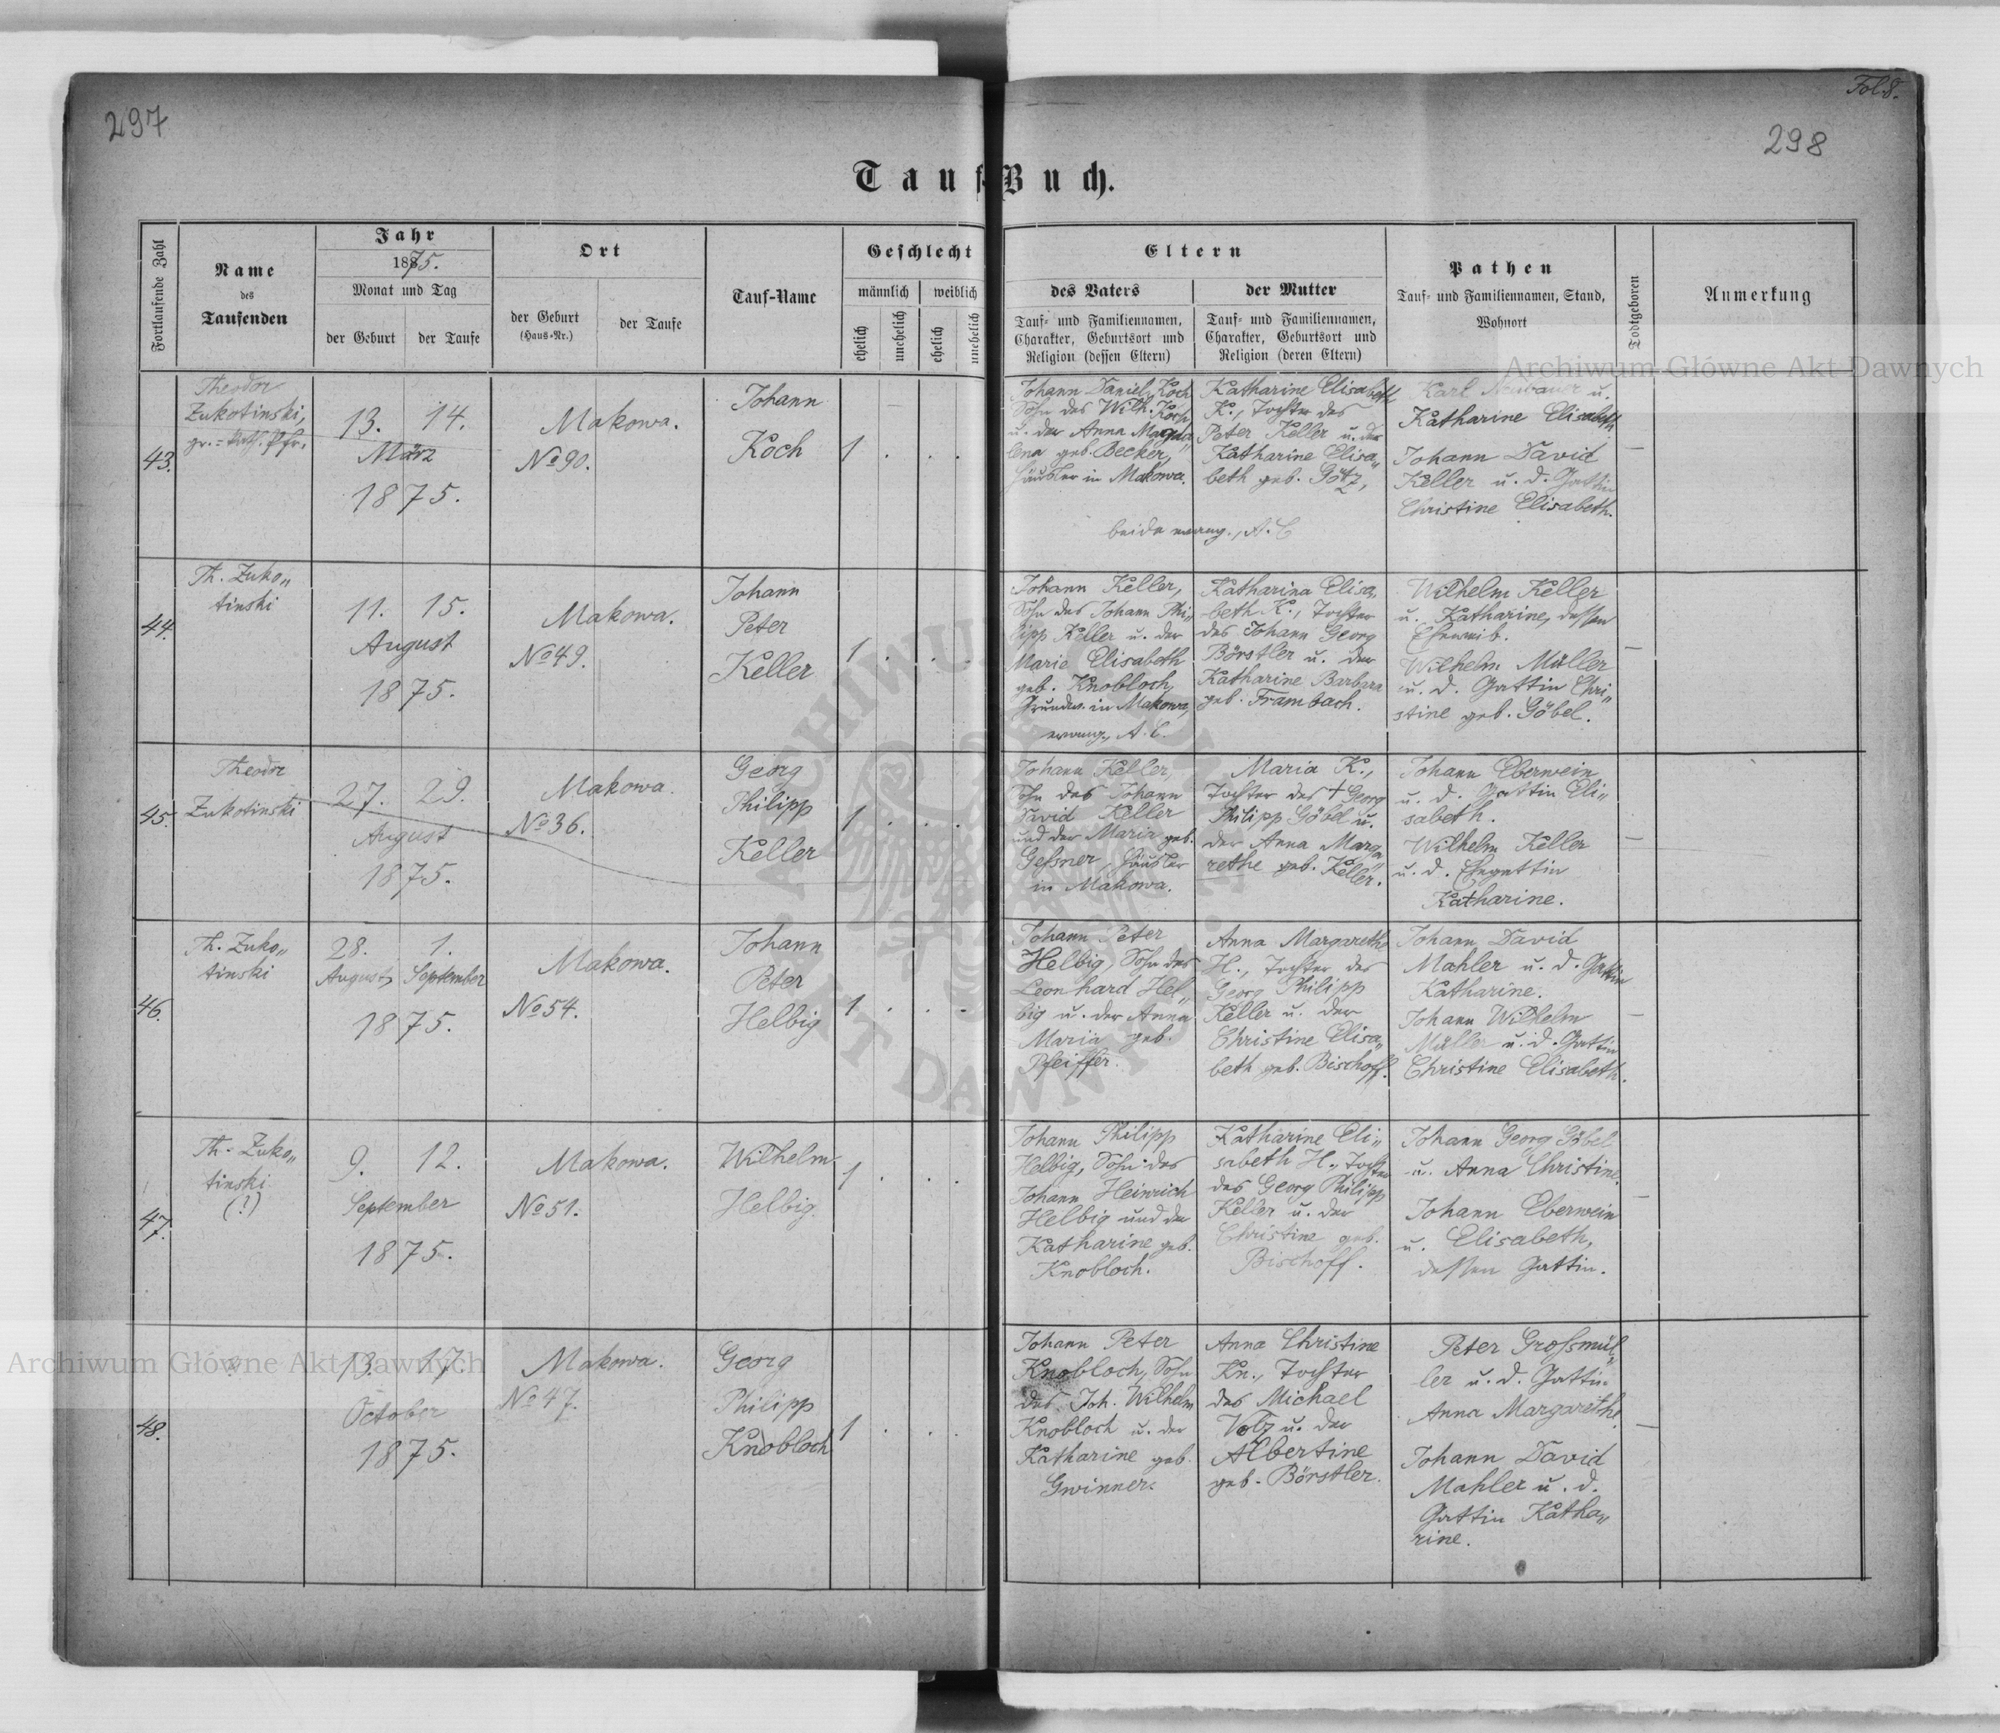 297
Fol. 8.
298
Tauf-Buch.
Fortlaufende Zahl
Name
des
Taufenden
Jahr
1875.
Monat und Tag
der Geburt
der Taufe
Ort
der Geburt
(Haus-Nr.)
der Taufe
Tauf-Name
Geschlecht
männlich
weiblich
ehelich
unehelich
ehelich
unehelich
Eltern
des Vaters
Tauf- und Familiennamen,
Charakter, Geburtsort und
Religion (dessen Eltern)
der Mutter
Tauf- und Familiennamen,
Charakter, Geburtsort und
Religion (deren Eltern)
Pathen
Tauf- und Familiennamen, Stand,
Wohnort
Todtgeboren
Anmerkung
Archiwum Główne Akt Dawnych
43.
Theodor
Zukotinski,
gr.=kath. Pfr.
13. 14.
März
1875.
Makowa.
No 90.
Johann
Koch
1 . . .
Johann Daniel Koch
Sohn des Wilh. Koch
u. der Anna Magda
lena geb. Becker,
Häusler in Makowa.
Katharine Elisabeth
K., Tochter des
Peter Keller u. der
Katharine Elisa„
beth geb. Götz,
beide evang., A. C
Karl Neubauer u.
Katharine Elisabeth
Johann David
Keller u. d. Gattin
Christine Elisabeth.
—
44.
Th. Zuko„
tinski
11. 15.
August
1875.
Makowa.
No 49.
Johann
Peter
Keller
1 . . .
Johann Keller,
Sohn des Johann Phi„
lipp Keller u. der
Marie Elisabeth
geb. Knobloch,
Grundw. in Makowa,
evang., A. C.
Katharina Elisa„
beth K., Tochter
des Johann Georg
Börstler u. der
Katharine Barbara
geb. Frambach.
Wilhelm Keller
u. Katharine, dessen
Eheweib.
Wilhelm Müller
u. d. Gattin Chri„
stine geb. Göbel.
—
45.
Theodor
Zukotinski
27. 29.
August
1875.
Makowa.
No 36.
Georg
Philipp
Keller
1 . . .
Johann Keller,
Sohn des Johann
David Keller
und der Maria geb.
Geßner, Häusler
in Makowa.
Maria K.,
Tochter des † Georg
Philipp Göbel u.
der Anna Marga„
rethe geb. Keller.
Johann Eberwein
u. d. Gattin Eli„
sabeth.
Wilhelm Keller
u. d. Ehegattin
Katharine.
—
46.
Th. Zuko„
tinski
28. 1.
August, September
1875.
Makowa.
No 54.
Johann
Peter
Helbig
1 . . .
Johann Peter
Helbig, Sohn des
Leonhard Hel„
big u. der Anna
Maria geb.
Pfeiffer.
Anna Margarethe
H., Tochter des
Georg Philipp
Keller u. der
Christine Elisa„
beth geb. Bischoff.
Johann David
Mahler u. d. Gattin
Katharine.
Johann Wilhelm
Müller u. d. Gattin
Christine Elisabeth.
—
47.
Th. Zuko„
tinski
(?)
9. 12.
September
1875.
Makowa.
No 51.
Wilhelm
Helbig.
1 . . .
Johann Philipp
Helbig, Sohn des
Johann Heinrich
Helbig und der
Katharine geb.
Knobloch.
Katharine Eli„
sabeth H., Tochter
des Georg Philipp
Keller u. der
Christine geb.
Bischoff.
Johann Georg Göbel
u. Anna Christine.
Johann Eberwein
u. Elisabeth,
dessen Gattin.
—
48.
?
13. 17.
October
1875.
Makowa.
No 47.
Georg
Philipp
Knobloch
1 . . .
Johann Peter
Knobloch, Sohn
des Joh. Wilhelm
Knobloch u. der
Katharine geb.
Gwinner.
Anna Christine
Kn., Tochter
des Michael
Volz u. der
Albertine
geb. Börstler.
Peter Großmül„
ler u. d. Gattin
Anna Margarethe.
Johann David
Mahler u. d.
Gattin Katha„
rine.
—
Archiwum Główne Akt Dawnych